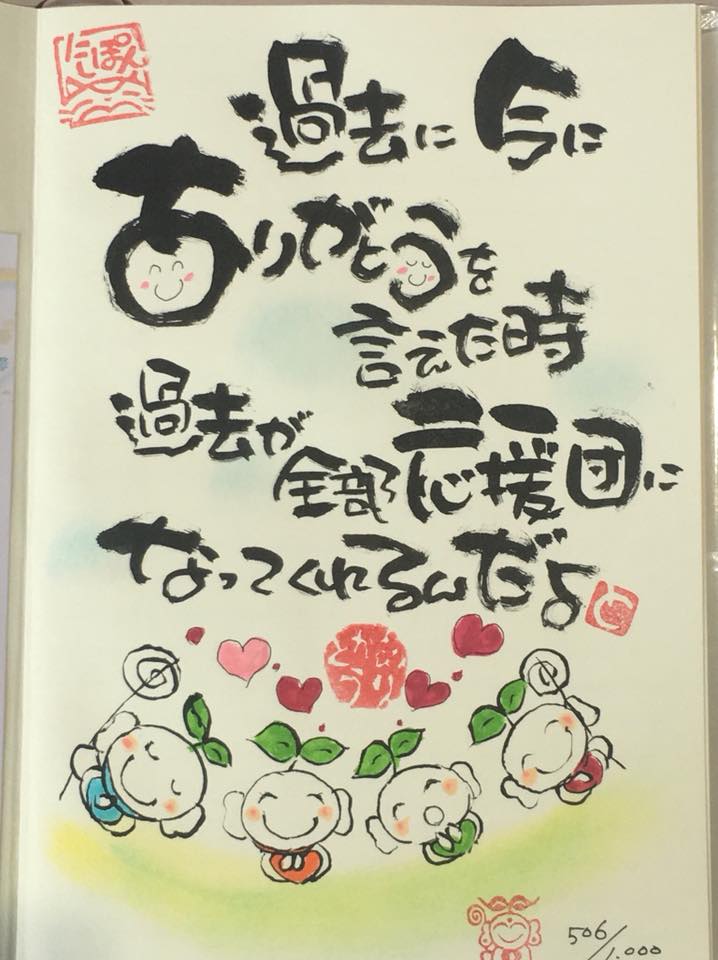 にしぽん
過去に 今に
ありがとうを
言えた時
過去が
全部応援団に
なってくれるんだよ
506/1,000